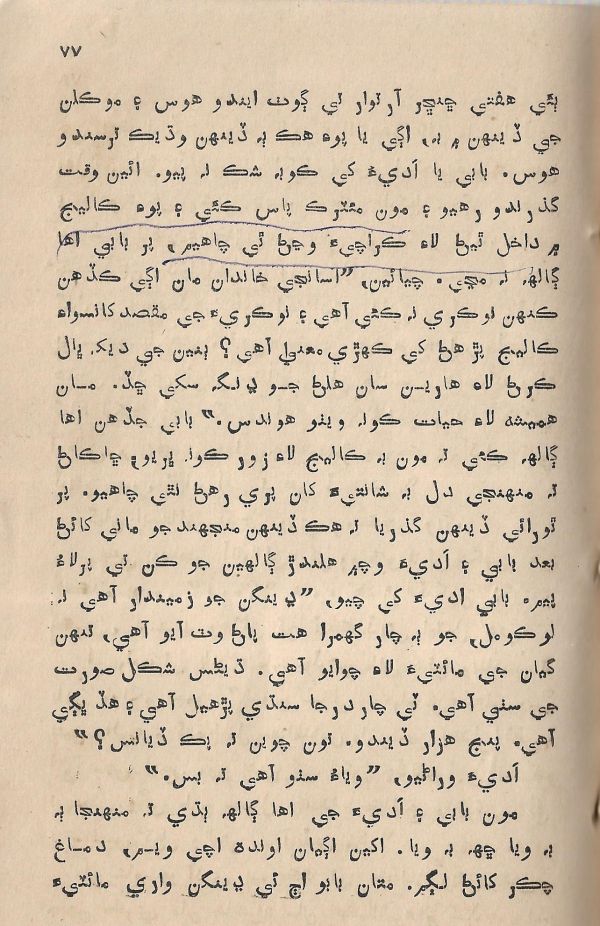 ٧٧
ٻئي هفتي ڇنڇر آرتوار تي ڳوٺ ايندو هوس ۽ موڪلن
جي ڏينهن ۾ به، اڳي يا پوءِ هڪ ٻه ڏينهن وڌيڪ ترسندو
هوس. بابي يا اَديءَ کي ڪو به شڪ نه پيو. ائين وقت
گذرندو رهيو ۽ مون مئٽرڪ پاس ڪئي ۽ پوءِ ڪاليج
۾ داخل ٿيڻ لاءِ ڪراچيءَ وڃڻ ٿي چاهيم، پر بابي اها
ڳالهه نه مڃي. چيائين، ”اسانجي خاندان مان اڳي ڪڏهن
ڪنهن نوڪري نه ڪئي آهي ۽ نوڪريءَ جي مقصد کانسواءِ
ڪاليج پڙهڻ کي ڪهڙي معنيٰ آهي؟ ٻنين جي ديکه ڀال
ڪرڻ لاءِ هارين سان هلڻ جو ڍنگ سکي ڇڏ. مان
هميشه لاءِ حيات ڪونه ويٺو هوندس.“ بابي جڏهن اها
ڳالهه ڪئي ته مون به ڪاليج لاءِ زور ڪونه ڀريو، ڇاڪاڻ
ته منهنجي دل به شانتيءَ کان پري رهڻ نٿي چاهيو. پر
ٿورائي ڏينهن گذريا ته هڪ ڏينهن منجهند جو ماني کائڻ
بعد بابي ۽ اَديءَ وچ۾ هلندڙ ڳالهين جو ڪن تي پرلاءُ
پيم. بابي اديءَ کي چيو، ”ڍينگن جو زميندار آهي نه
لوڪومل، جو ٻه چار گهمرا هت پاڻ وٽ آيو آهي، تنهن
گيان جي مائٽيءَ لاءِ چوايو آهي. ڏيڻس شڪل صورت
جي سٺي آهي. ٽي چار درجا سنڌي پڙهيل آهي ۽ هڏ ڀڳي
آهي. پنج هزار ڏيندو. تون چوين ته پڪ ڏيانس؟“
اَديءَ وراڻيو، ”وياءُ سٺو آهي ته بس.“
مون بابي ۽ اَديءَ جي اها ڳالهه ٻڌي ته منهنجا ٻه
به ويا ڇهه به ويا. اکين اڳيان اونده اچي ويم، دماغ
چڪر کائڻ لڳو. مٿان بابو اڄ ئي ڍينگن واري مائٽيءَ